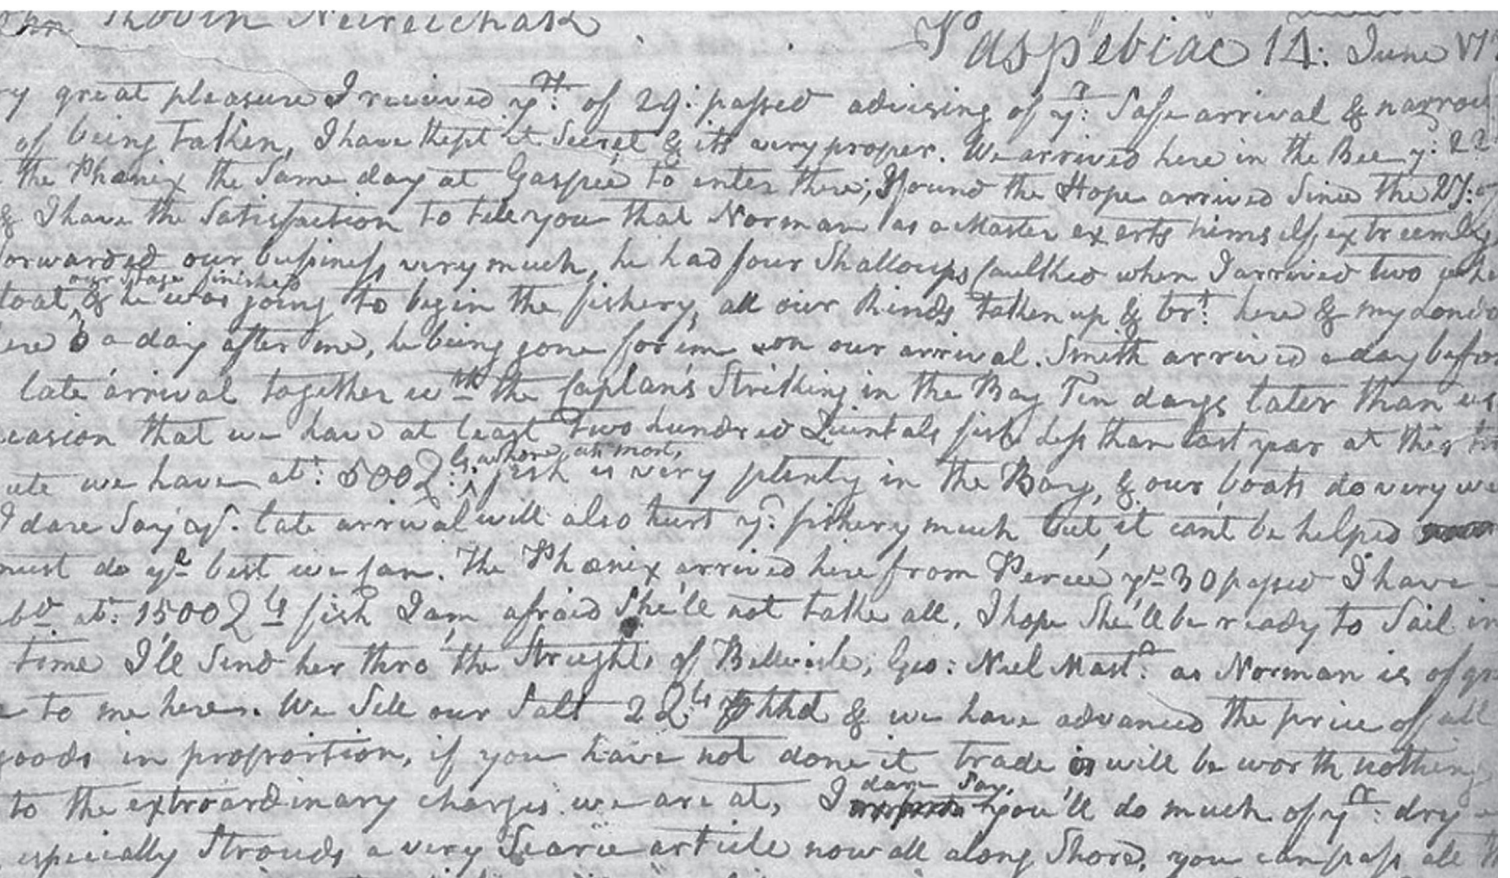 Robin Neireichak
Paspebiac 14: June
great pleasure I received yrs: of 29: passed advising of yr: Safe arrival & narrow
of being taken, I have kept it Secret & its very proper. We arrived here in the Bee ye: 22
the Phœnix the Same day at Gaspee to enter there; I found the Hope arrived Since the
& I have the Satisfaction to tell you that Norman as a Master exerts himself extreemly
forwarded our bussiness very much, he had four Shalloups caulked when I arrived two
our Stage finished
& he was going to begin the fishery, all our Rinds taken up & brt: here & my
a day after me, he being gone for em on our arrival. Smith arrived a day before
late arrival together wth the Caplan's Striking in the Bay Ten days later than us
occasion that we have at least Two hundred Quintals fish Less than last year at this
ashore at most,
we have at: 500 Qls: fish is very plenty in the Bay, & our boats do very
I dare Say yr: late arrival will also hurt yr: fishery much but it cant be helped
must do ye best we can. The Phœnix arrived here from Percee ye 30 passed I have
at: 1500 Qls fish I am afraid She'll not take all, I hope She'll be ready to Sail in
time I'll Send her thro' the Streights of Belleisle, Geo: Neel Mastr as Norman is of
to me here. We Sell our Salt 2 Qls hhd & we have advanced the price of all
goods in proportion, if you have not done it trade will be worth nothing
dare Say,
to the extraordinary charges we are at, I you'll do much of yr: dry
especially Strouds a very Scarce article now all along Shore, you can pass all